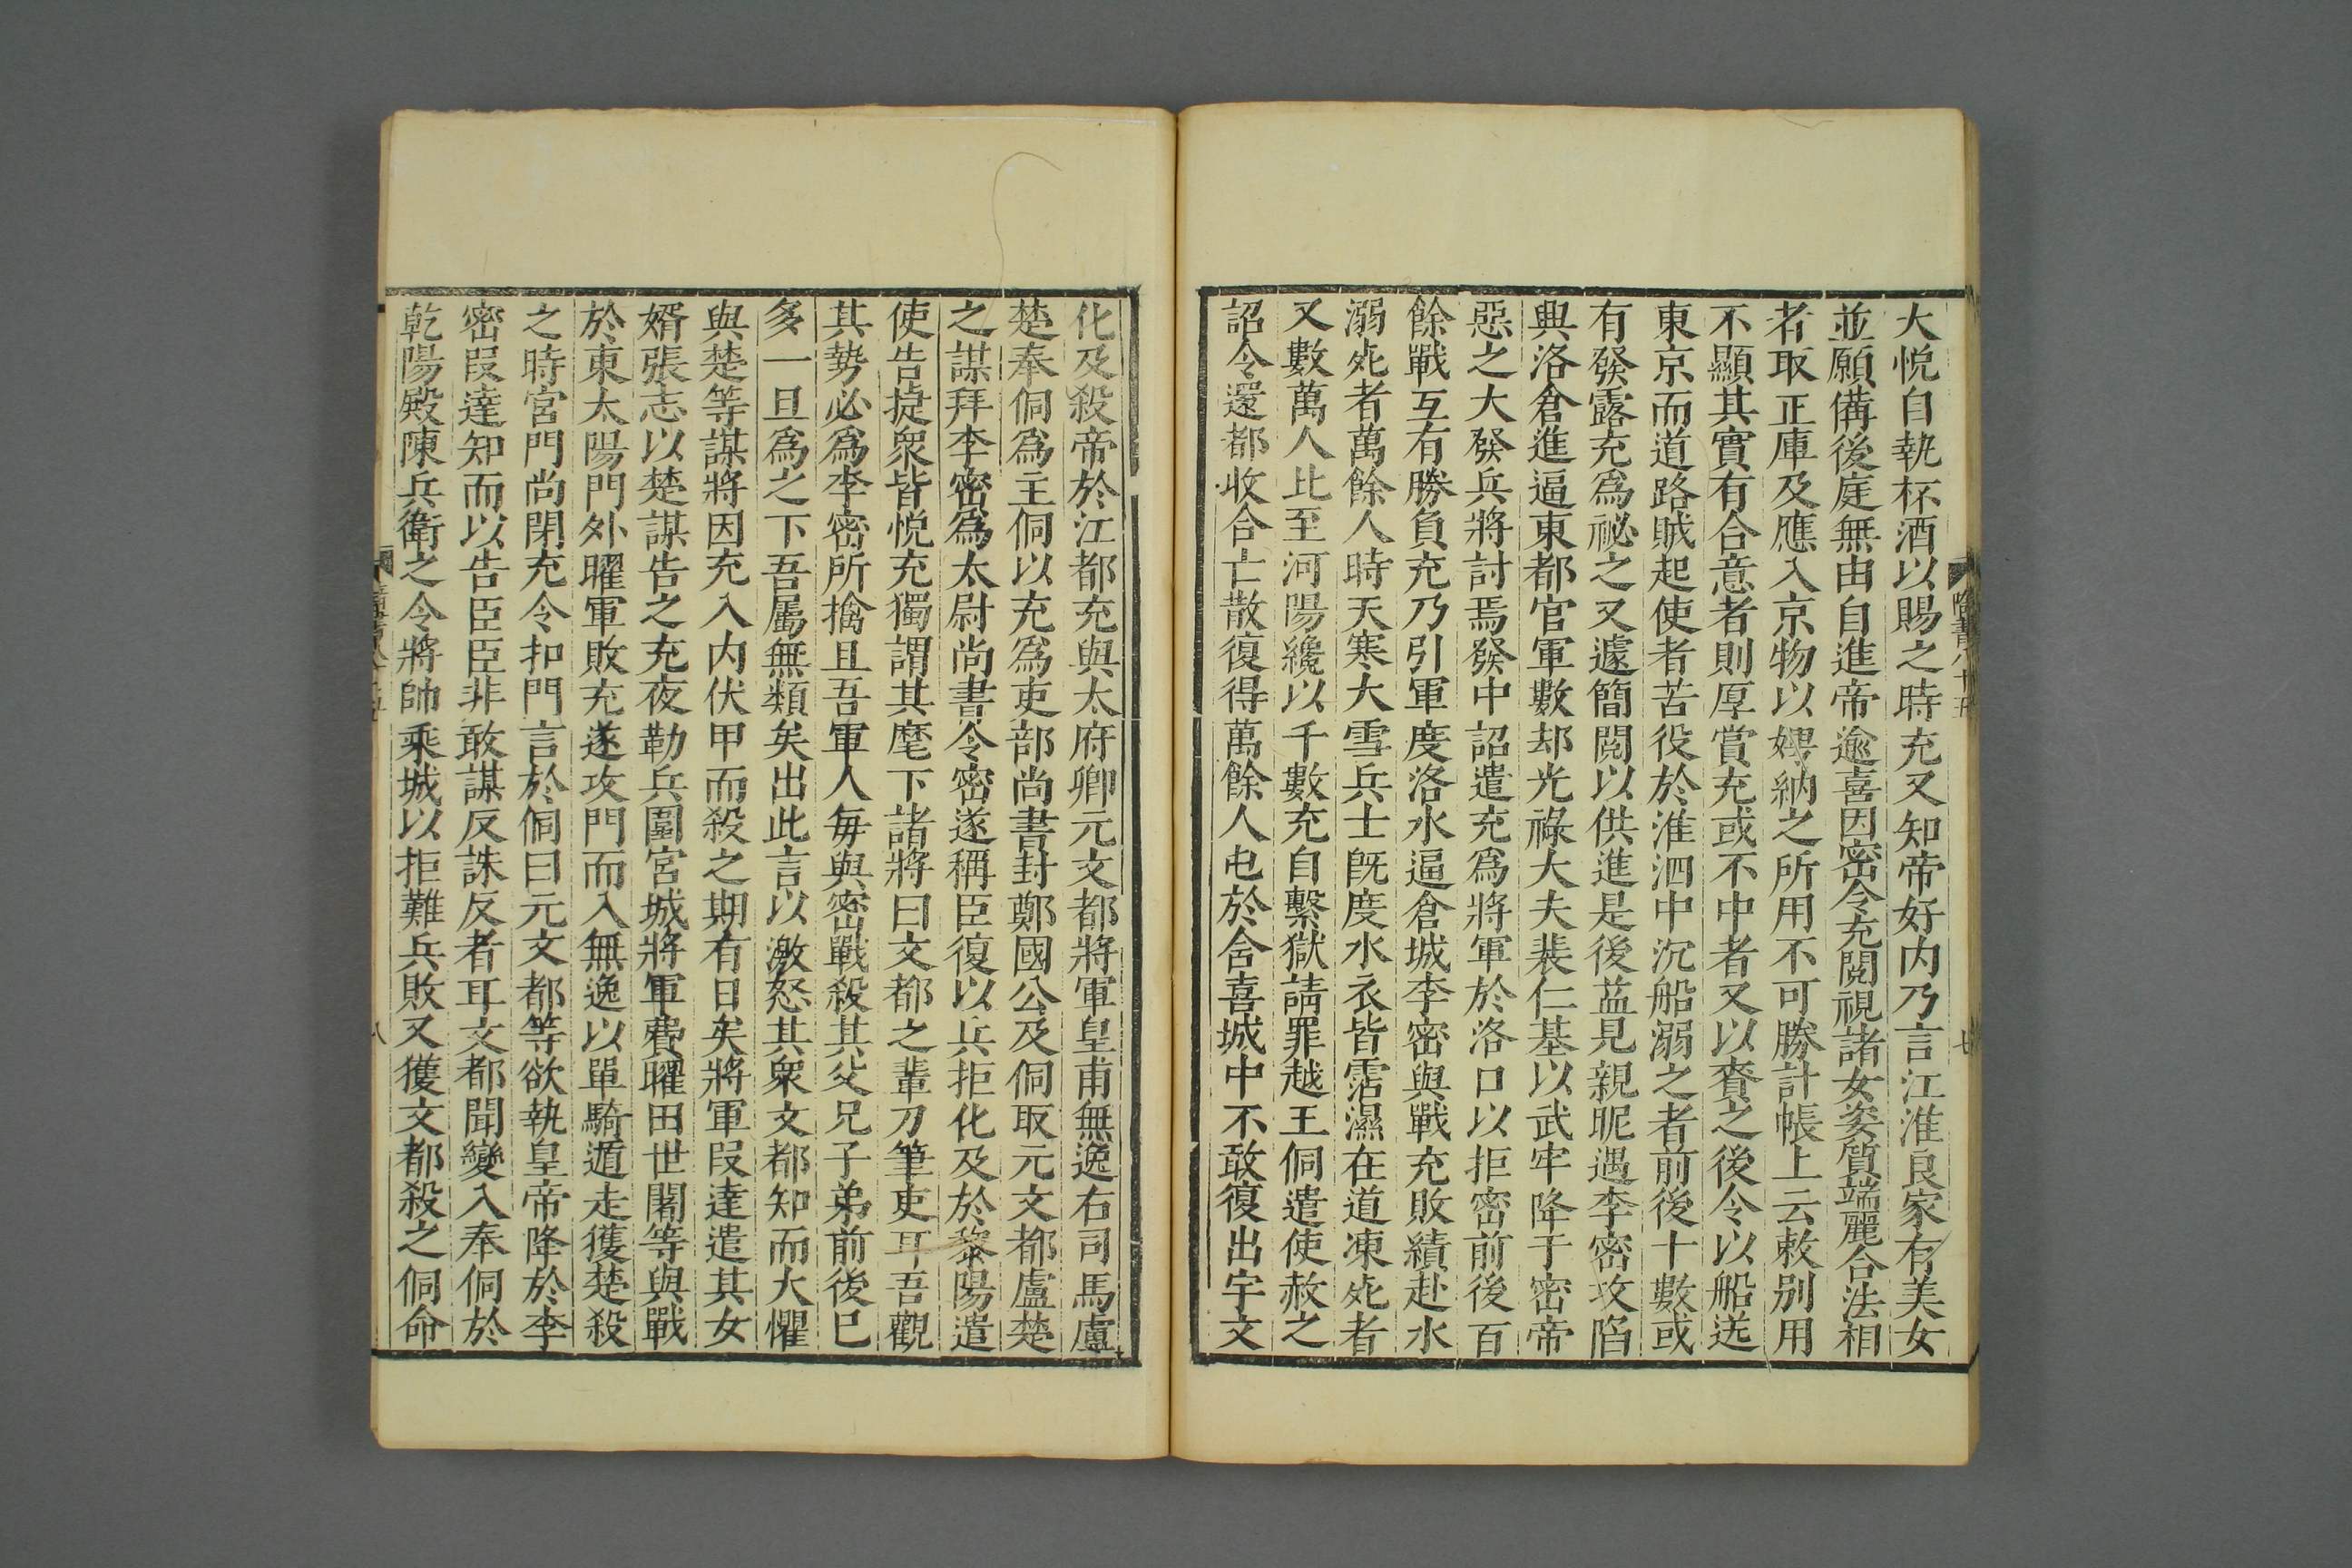 大悦自執杯酒以賜之時充又知帝好内乃言江淮良家有美女
並願備後庭無由自進帝逾喜因密令充閱視諸女姿質端麗合法相
者取正庫及應入京物以娉納之所用不可勝計帳上云敕别用
不顯其實有合意者則厚賞充或不中者又以賚之後令以船送
東京而道路賊起使者苦役於淮泗中沉船溺之者前後十數或
有發露充爲祕之又遽簡閱以供進是後益見親昵遇李密攻陷
興洛倉進逼東都官軍數却光祿大夫裴仁基以武牢降于密帝
惡之大發兵將討焉發中詔遣充爲將軍於洛口以拒密前後百
餘戰互有勝負充乃引軍度洛水逼倉城李密與戰充敗績赴水
溺死者萬餘人時天寒大雪兵士既度水衣皆霑濕在道凍死者
又數萬人比至河陽纔以千數充自繫獄請罪越王侗遣使赦之
詔令還都收合亡散復得萬餘人屯於含喜城中不敢復出宇文
隋書八十五
七
化及殺帝於江都充與太府卿元文都將軍皇甫無逸右司馬盧
楚奉侗爲主侗以充爲吏部尚書封鄭國公及侗取元文都盧楚
之謀拜李密爲太尉尚書令密遂稱臣復以兵拒化及於黎陽遣
使告捷衆皆悦充獨謂其麾下諸將曰文都之輩刀筆吏耳吾觀
其勢必爲李密所擒且吾軍人每與密戰殺其父兄子弟前後已
多一旦爲之下吾屬無類矣出此言以激怒其衆文都知而大懼
與楚等謀將因充入内伏甲而殺之期有日矣將軍段達遣其女
婿張志以楚謀告之充夜勒兵圍宮城將軍費曜田世闍等與戰
於東太陽門外曜軍敗充遂攻門而入無逸以單騎遁走獲楚殺
之時宮門尚閉充令扣門言於侗曰元文都等欲執皇帝降於李
密段達知而以告臣臣非敢謀反誅反者耳文都聞變入奉侗於
乾陽殿陳兵衛之令將帥乘城以拒難兵敗又獲文都殺之侗命
八